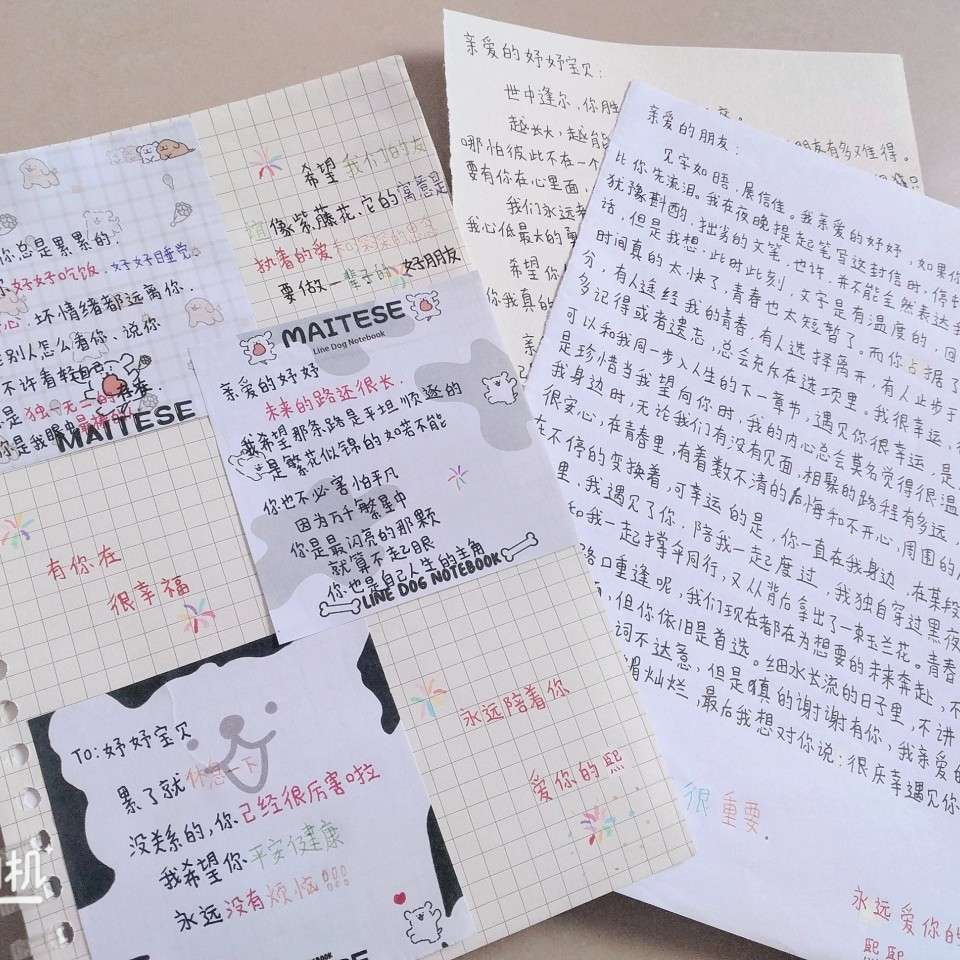 你总是累累的.
好好吃饭. 好好睡觉
坏情绪都远离你.
别人怎么看你、说你
不许看轻自己.
是独一无二的存在
你是我眼中最棒的
MAITESE
希望我们的友
谊像紫藤花、它的寓意是
执着的爱
要做一辈子的好朋友
MAITESE
Line Dog Notebook
亲爱的妤妤
未来的路还很长.
我希望那条路是平坦顺遂的
是繁花似锦的如若不能
你也不必害怕平凡
因为万千繁星中
你是最闪亮的那颗
就算不起眼
你也是自己人生的主角
LINE DOG NOTEBOOK
有你在
很幸福
TO: 妤妤宝贝
累了就休息一下
没关系的, 你已经很厉害啦
我希望你平安健康
永远没有烦恼!!!
永远陪着你
爱你的熙
亲爱的妤妤宝贝:
世中逢尔, 你胜
越长大, 越能
朋友有多又难得。
哪怕彼此不在一个
要有你在心里面,
我们永远
我心低最大的
希望你
你我真的
亲爱的朋友:
见字如晤, 展信佳。我亲爱的妤妤, 如果你
比你先流泪。我在夜晚提起笔写这封信时, 停
犹豫斟酌, 拙劣的文笔, 也许, 并不能全然表达我
话, 但是我想, 此时此刻, 文字是有温度的, 回
时间真的太快了, 青春也太短暂了。而你占据了
分, 有人途经我的青春, 有人选择离开, 有人止步于
多记得或者遗忘, 总会充斥在选项里。我很幸运,
可以和我同步入人生的下一章节, 遇见你很幸运, 是
是珍惜当我望向你时, 我的内心总会莫名觉得很温
我身边时, 无论我们有没有见面, 相聚的路程有多远,
很安心, 在青春里, 有着数不清的后悔和不开心, 周围的
在不停的变换着, 可幸运的是, 你一直在我身边, 在某段
里, 我遇见了你, 陪我一起度过, 我独自穿过黑夜
和我一起撑伞同行, 又从背后拿出了一束玉兰花。青春
路口重逢呢, 我们现在都在为想要的未来奔赴, 不
但你依旧是首选。细水长流的日子里, 不讲
词不达意, 但是真的谢谢有你, 我亲爱的
灿烂, 最后我想对你说: 很庆幸遇见你
很重要.
永远爱你的
熙熙